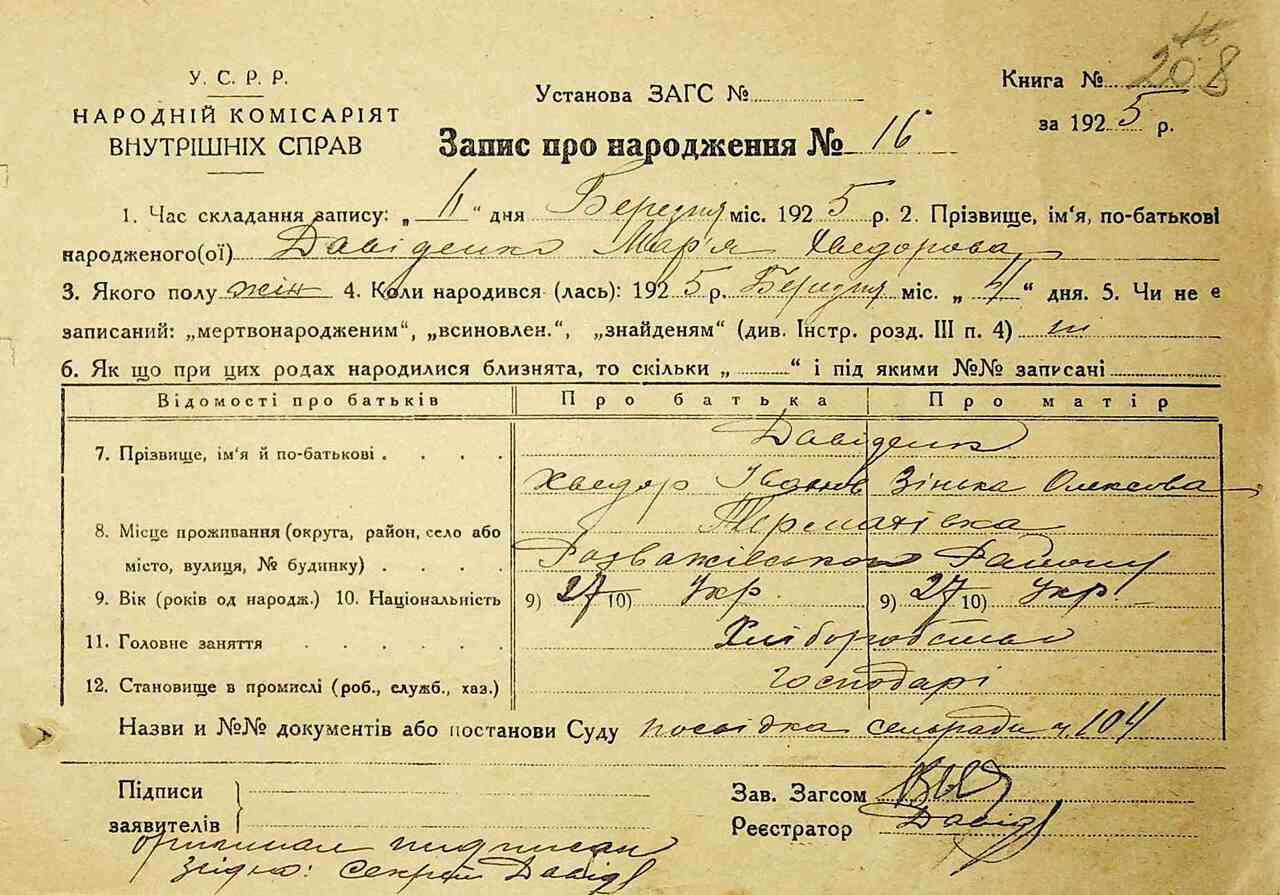 208
У. С. Р. Р.
НАРОДНІЙ КОМІСАРІЯТ
ВНУТРІШНІХ СПРАВ
Установа ЗАГС №
Книга №
за 1925 р.
Запис про народження № 16
1. Час складання запису: „11“ дня Березня міс. 1925 р. 2. Прізвище, ім'я, по-батькові
народженого(ої) Давіденко Мар'я Хведорова
3. Якого полу жін 4. Коли народився (лась): 1925 р. Березня міс. „4“ дня. 5. Чи не є
записаний: „мертвонародженим“, „всиновлен.“, „знайденям“ (див. Інстр. розд. III п. 4) ні
6. Як що при цих родах народилися близнята, то скільки „ “ і під якими №№ записані
Відомості про батьків Про батька Про матір
7. Прізвище, ім'я й по-батькові . . . . Давіденко
Хведор Іванов Зінька Олексова
8. Місце проживання (округа, район, село або Термахівка
місто, вулиця, № будинку) . . . . Розважівського Району
9. Вік (років од народж.) 10. Національність 9) 27 10) Укр. 9) 27 10) Укр.
11. Головне заняття . . . . . . Хліборобство
12. Становище в промислі (роб., служб., хаз.) господарі
Назви и №№ документів або постанови Суду посвідка сельради ч. 104
Підписи
заявителів
Зав. Загсом
Реєстратор Давід
оригинал підписан
Згідно: Секрет Давід